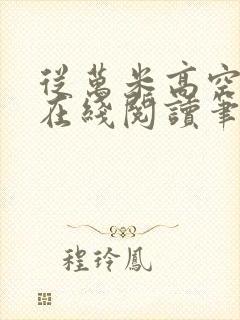 從萬米高空
在綫閱讀筆
程玲鳳